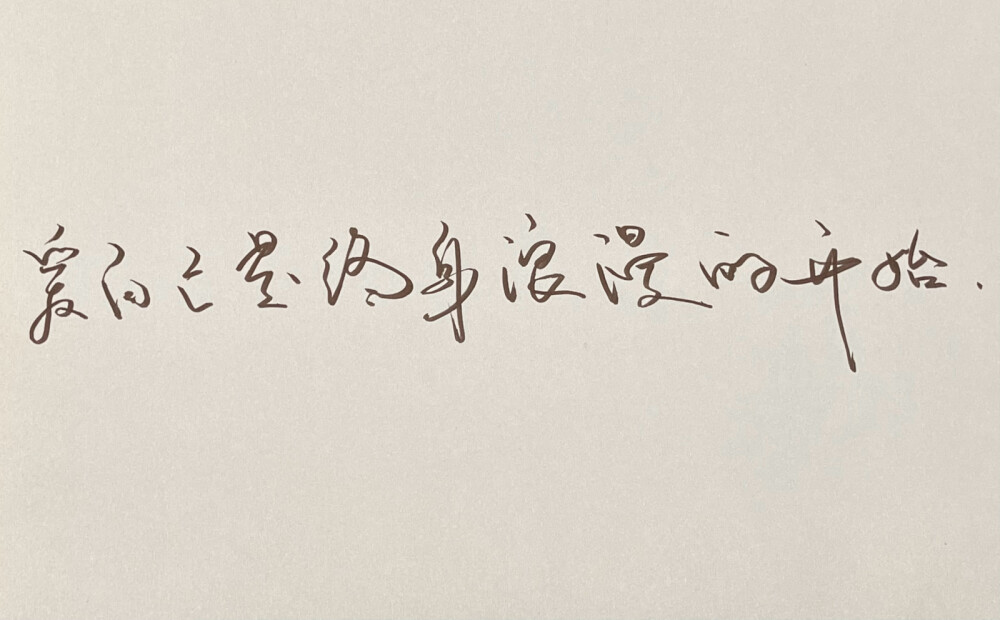 爱自己是终身浪漫的开始.